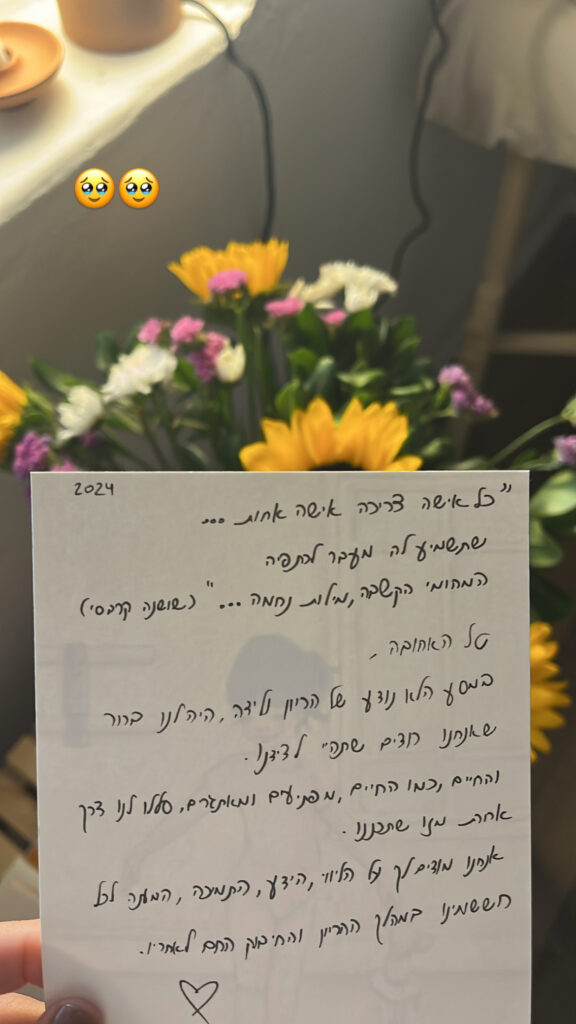 2024
"כל אישה צריכה אישה אחות ...
שתשמיע לה מעבר לכתפיה
המהומי הקשבה, מילות נחמה ..." (שושנה קרבסי)
טל האהובה,
במסע הלא נודע של הריון ולידה, היה לנו ברור
שאנחנו רוצים שתהיי לצידנו.
והחיים, כמו החיים, מפתיעים ומאתגרים, סללו לנו דרך
אחרת מזו שתכננו.
אנחנו מודים לך על הליווי, הידע, התמיכה, המענה לכל
חששותינו במהלך ההריון והחיבוק החם לאחריו.